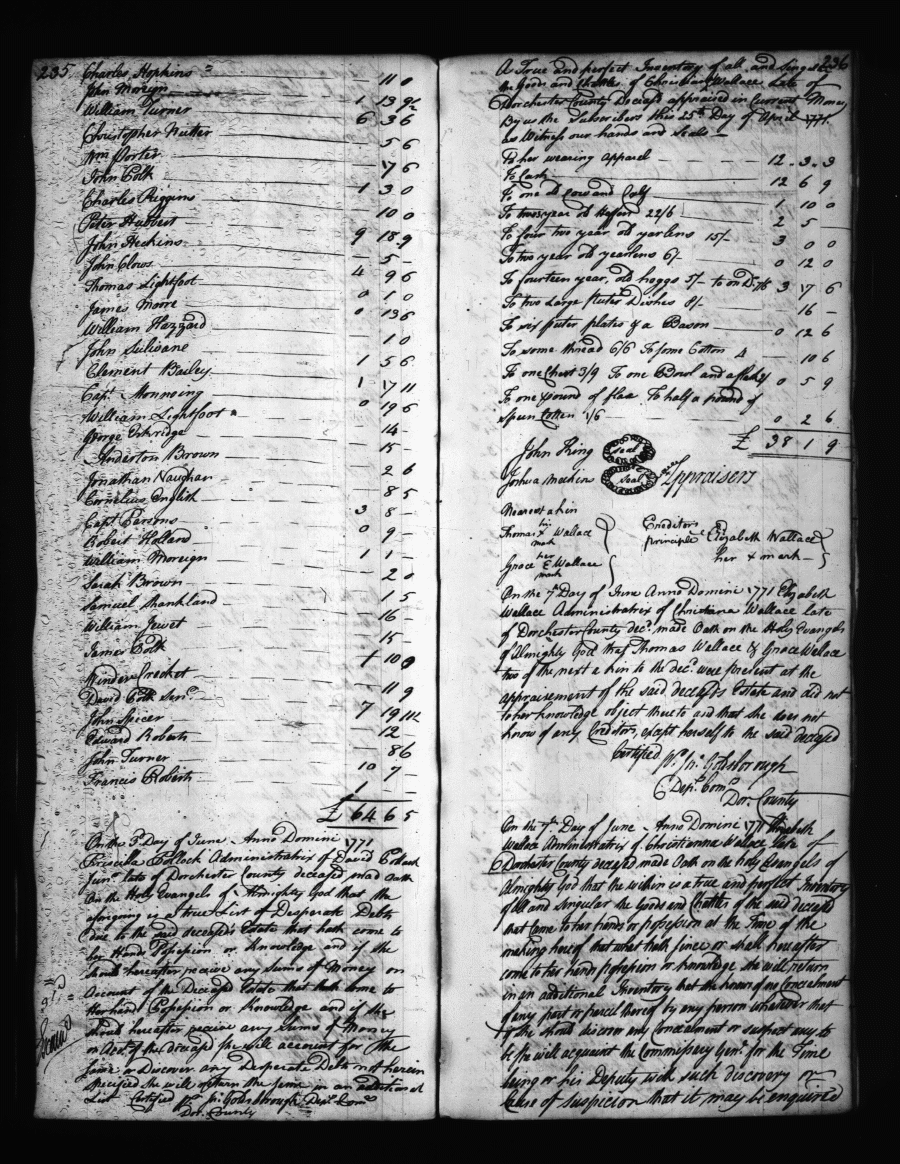 235
Charles Hopkins 11 0
John Moreign 1 13 9
William Turner 6 3 6
Christopher Nutter
Wm Porter 5 6
John Polk 17 6
Charles Riggins 1 3 0
Peter Hubbert 10 0
John Heckins 9 18 9
John Clows 5 -
Thomas Lightfoot 4 9 6
James Moore 0 1 0
William Hazzard 0 13 6
John Sulivane 1 0
Clement Bailey 1 5 6
Capt. Monnoing 1 17 11
William Lightfoot 0 19 6
George Eskridge 14 -
Anderton Brown 15 -
Jonathan Vaughan 2 6
Cornelius English 8 5
Capt Parsons 3 8 -
Robert Holland 0 9 -
William Moreign 1 1 -
Sarah Brown 2 0
Samuel Shankland 1 5
William Jewet 16 -
James Polk 15 -
Winder Crocket 1 10 0
David Polk Senr. 11 9
John Spicer 7 19 11½
Edward Roberts 12 -
John Turner 8 6
Francis Roberts 10 7 -
1 - -
£ 64 6 5
On the 5th Day of June Anno Domini 1771
Priscilla Pollock Administratrix of David Pollock
Junr. late of Dorchester County deceased mad Oath
On the Holy Evangels of Almighty God that the
aforgoing is a true List of Desperate Debts
due to the said deceaseds Estate that hath come to
her Hands Possession or Knowledge and if she
shoud hereafter receive any Sums of Money on
Account of the Deceased Estate that hath come to
Her hand Possession or Knowledge and if she
shoud hereafter receive any Sums of Money
on Acct. of the deceased she will account for the
same or Discover any Desperate Debts not herein
specified she will return the same in an additional
List Certified pr. Goldsborough Dept. Comy
Dor. County
236
A True and perfect Inventory of all and Singular
the Goods and Chattles of Christian Wallace Late of
Dorchester County Deceasd appraised in Current Money
By us the Subscribers this 25th Day of April 1771.
as Witness our hands and Seals
To her wearing Apparel 12 . 3 . 3
To Cash 12 6 9
To one old Cow and Calf 1 10 0
To two year old Heifers 22/6 2 5
To four two year old yearlens 15/- 3 0 0
To two year old yearlens 6/- 0 12 0
To fourteen year old hoggs 5/- to on Do. 7/6 3 17 6
To two Large Puter Dishes 8/- 16 -
To six puter plates & a Bason 0 12 6
To some thread 6/6 To some Cotton 4 10 6
To one Chest 3/9 To one Bowl and a flask 2/ 0 5 9
To one pound of flax To half a pound of
spun Cotten 1/6 0 2 6
£ 38 1 9
John King Seal
Joshua Meekins Seal Appraisers
Nearest a kin
Thomas his x mark Wallace
Grace her E mark Wallace
Creditors
principle Elizabeth Wallace
her x mark
On the 7th Day of June Anno Domini 1771 Elizabeth
Wallace Administratrix of Christiana Wallace late
of Dorchester County decd. made Oath on the Holy Evangels
of Almighty God that Thomas Wallace & Grace Wallace
two of the next a kin to the decd. were present at the
appraisement of the said deceased's Estate and did not
to her knowledge object thereto and that she does not
know of any Creditors, except herself to the said deceased
Certified Pr. Goldsborough
Dept. Comy
Dor. County
On the 7th Day of June Anno Domini 1771 Elizabeth
Wallace Administratrix of Christianna Wallace late of
Dorchester County deceased made Oath on the Holy Evangels of
Almighty God that the within is a true and perfect Inventory
of All and Singular the Goods and Chattles of the said deceased
that Came to her hands or possession at the Time of the
making hereof that what hath since or shall hereafter
come to her hand possession or knowledge she will return
in an additional Inventory that she knows of no Concealment
of any part or parcel thereof by any person whatever that
if she should discover any Concealment or suspect any to
be she will acquaint the Commissary Genl. for the Time
being or his Deputy with such discovery or
Cause of suspicion that it may be enquired